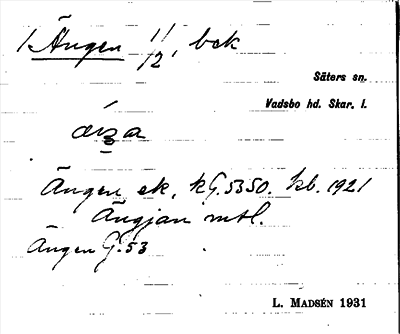 1 Ängen 1/1, 1/2, bck
Säters sn.
Vadsbo hd. Skar. l.
Ängen ek, kG.5350. kb. 1921
Ängjan mtl.
Ängen G.53
L. MADSÉN 1931